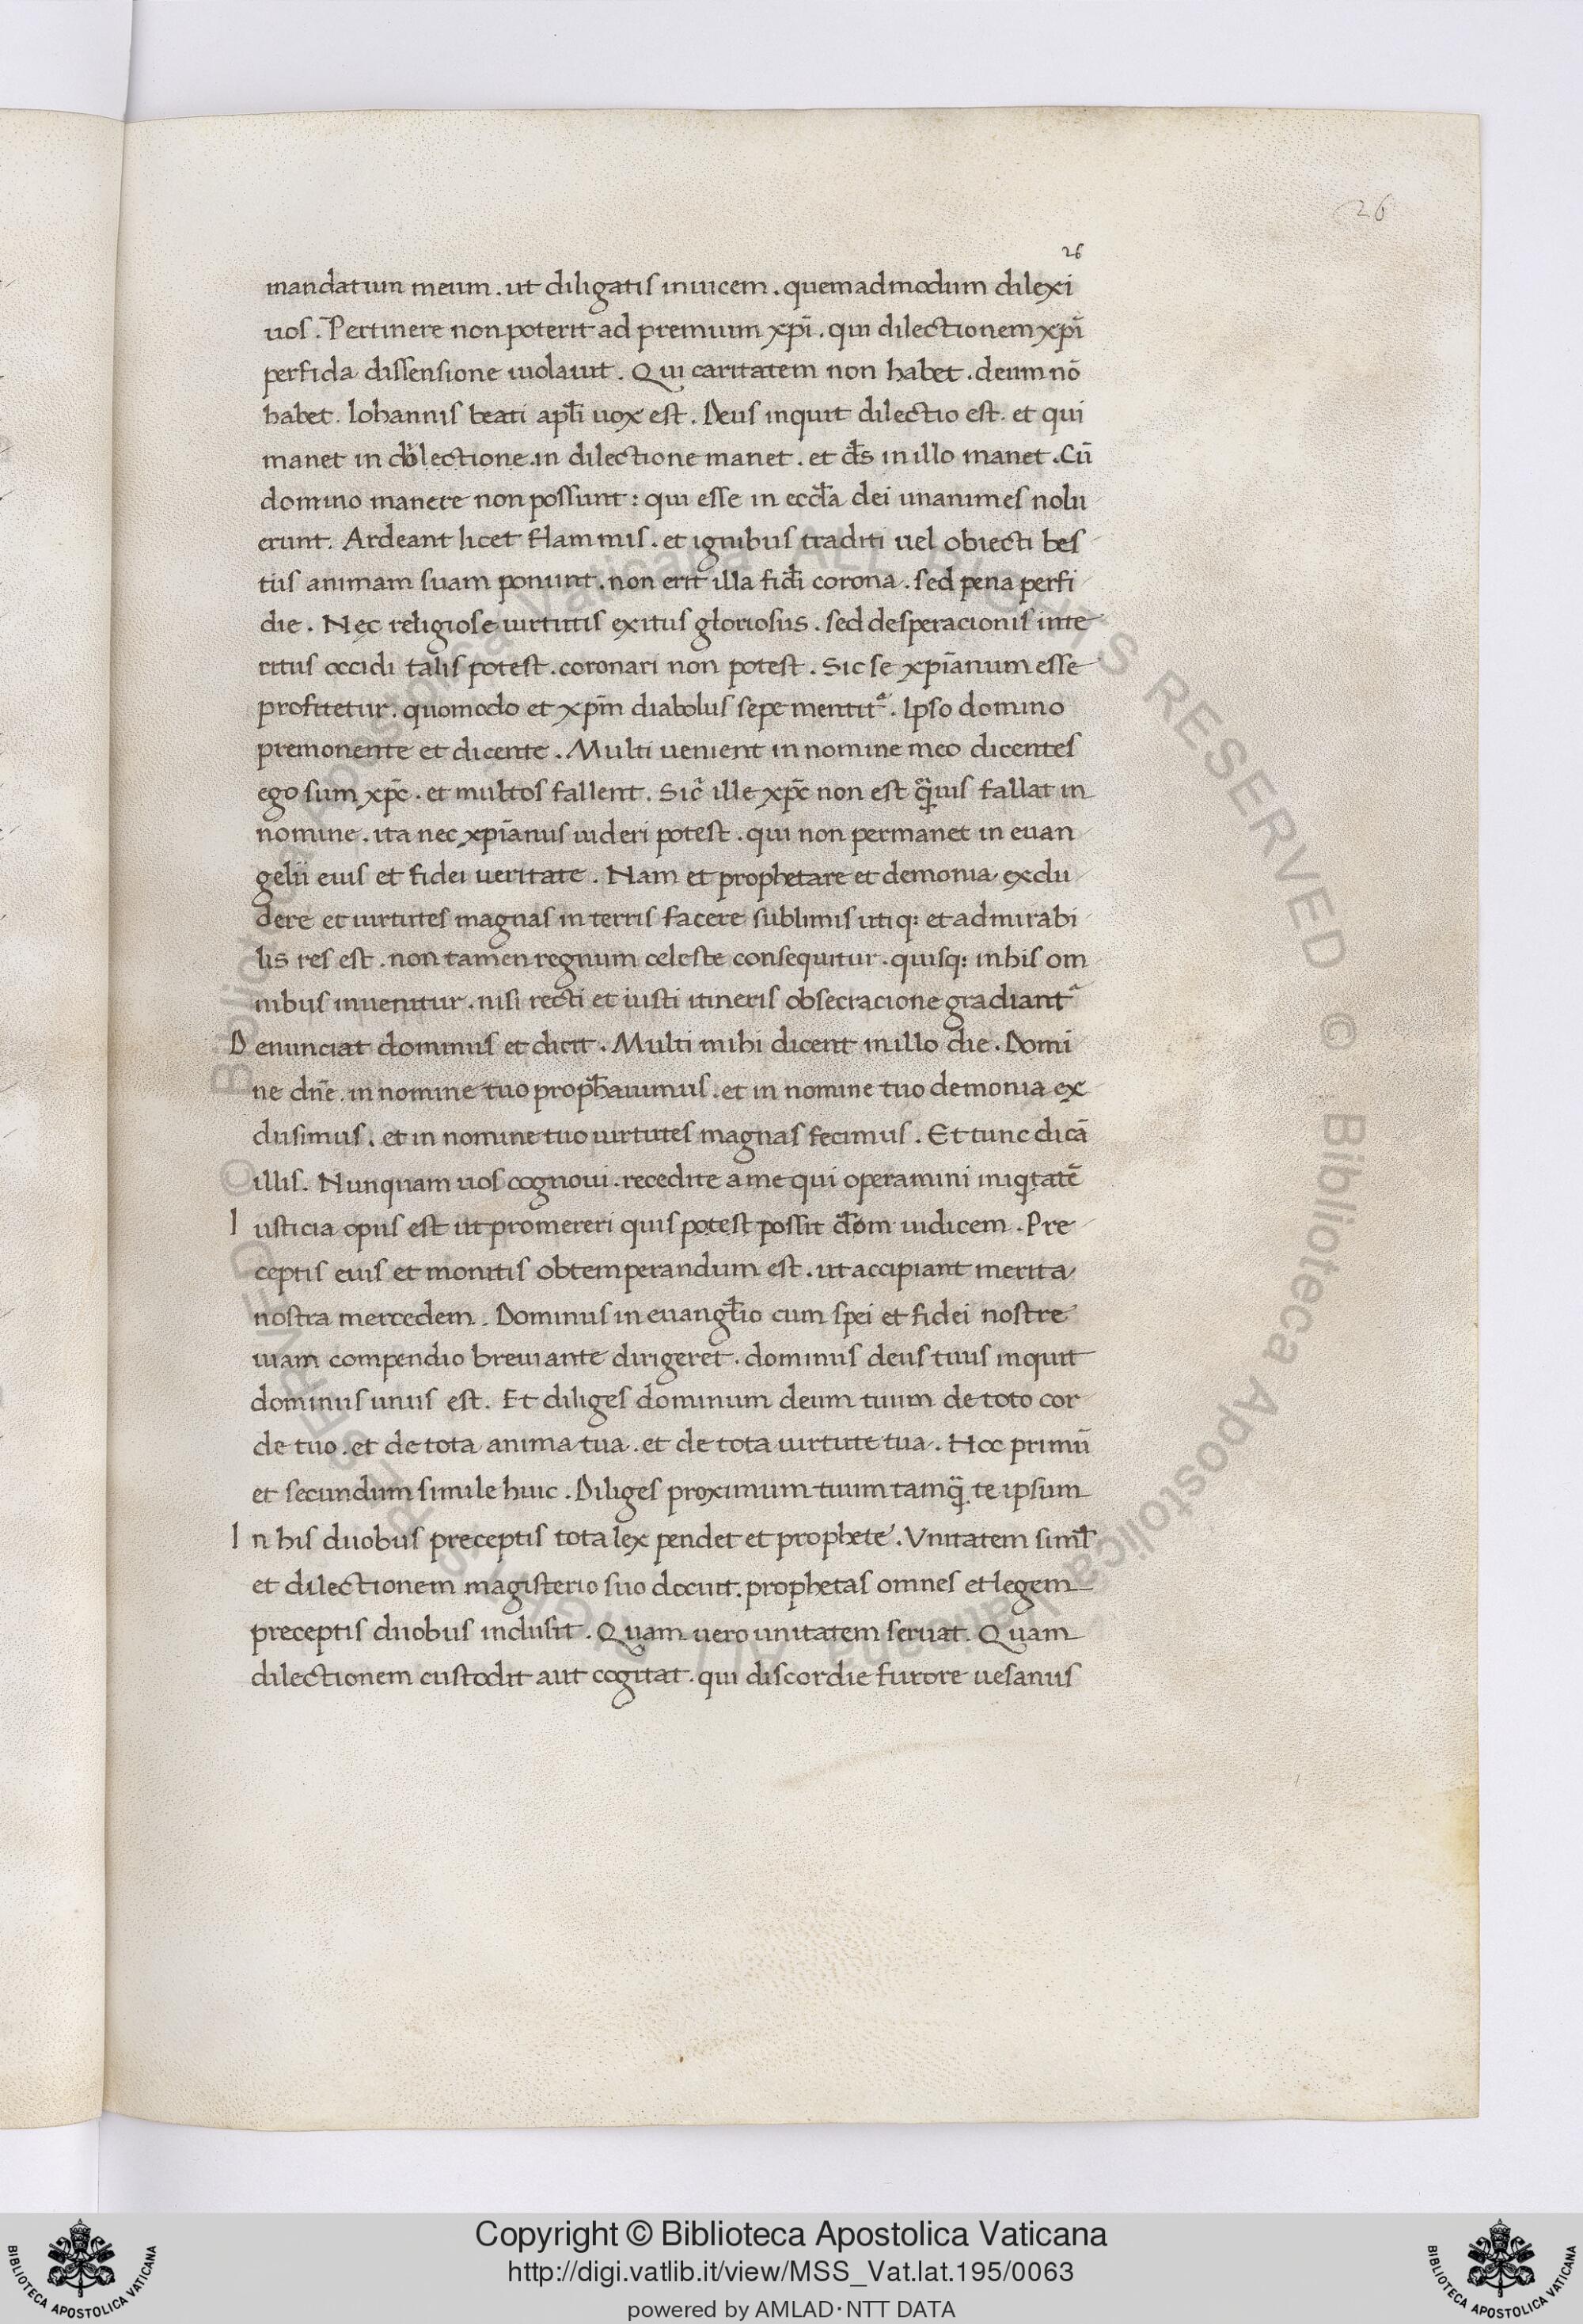 26
26
mandatum meum . ut diligatis inuicem . quemadmodum dilexi
uos . Pertinere non poterit ad premium xpi̅ . qui dilectionem xpi̅
perfida dissensione uiolauit . Qui caritatem non habet . deum no̅
habet . Iohannis beati apl̅i uox est . Deus inquit dilectio est . et qui
manet in dilectione . in dilectione manet . et d̅s in illo manet . Cu̅
domino manere non possunt : qui esse in eccl̅a dei unanimes nolu
erunt . Ardeant licet flammis . et ignibus traditi uel obiecti bes
tiis animam suam ponunt . non erit illa fid̅i corona . sed pena perfi
die . Nec religiose uirtutis exitus gloriosus . sed desperacionis inte
ritus occidi talis potest . coronari non potest . Sic se xpi̅anum esse
profitetur . quomodo et xpm̅ diabolus sepe mentit᷑ . Ipso domino
premonente et dicente . Multi uenient in nomine meo dicentes
ego sum xpc̅ . et multos fallent . Sic᷑ ille xpc̅ non est q̅uis fallat in
nomine . ita nec xpi̅anus uideri potest . qui non permanet in euan
gelii eius et fidei ueritate . Nam et prophetare et demonia exclu
dere et uirtutes magnas in terris facere sublimis utiq: et admirabi
lis res est . non tamen regnum celeste consequitur . quisq: in his om
nibus inuenitur . nisi recti et iusti itineris obsecracione gradiant᷑
Denunciat dominus et dicit . Multi mihi dicent in illo die . Domi
ne dn̅e . in nomine tuo proph̅auimus . et in nomine tuo demonia ex
clusimus . et in nomine tuo uirtutes magnas fecimus . Et tunc dica̅
illis . Nunquam uos cognoui . recedite a me qui operamini iniqtate̅
Iusticia opus est ut promereri quis potest possit d̅om iudicem . Pre
ceptis eius et monitis obtemperandum est . ut accipiant merita
nostra mercedem . Dominus in euangl̅io cum spei et fidei nostre
uiam compendio breuiante dirigeret . dominus deus tuus inquit
dominus unus est . Et diliges dominum deum tuum de toto cor
de tuo . et de tota anima tua . et de tota uirtute tua . Hoc primu̅
et secundum simile huic . Diliges proximum tuum tamq̅ te ipsum
In his duobus preceptis tota lex pendet et prophete . Vnitatem siml̅
et dilectionem magisterio suo docuit . prophetas omnes et legem
preceptis duobus inclusit . Quam uero unitatem seruat . Quam
dilectionem custodit aut cogitat . qui discordie furore uesanus
© Biblioteca Apostolica Vaticana ALL RIGHTS RESERVED © Biblioteca Apostolica Vaticana ALL RIGHTS RESERVED
Copyright © Biblioteca Apostolica Vaticana
http://digi.vatlib.it/view/MSS_Vat.lat.195/0063
powered by AMLAD·NTT DATA
BIBLIOTECA APOSTOLICA VATICANA
BIBLIOTECA APOSTOLICA VATICANA